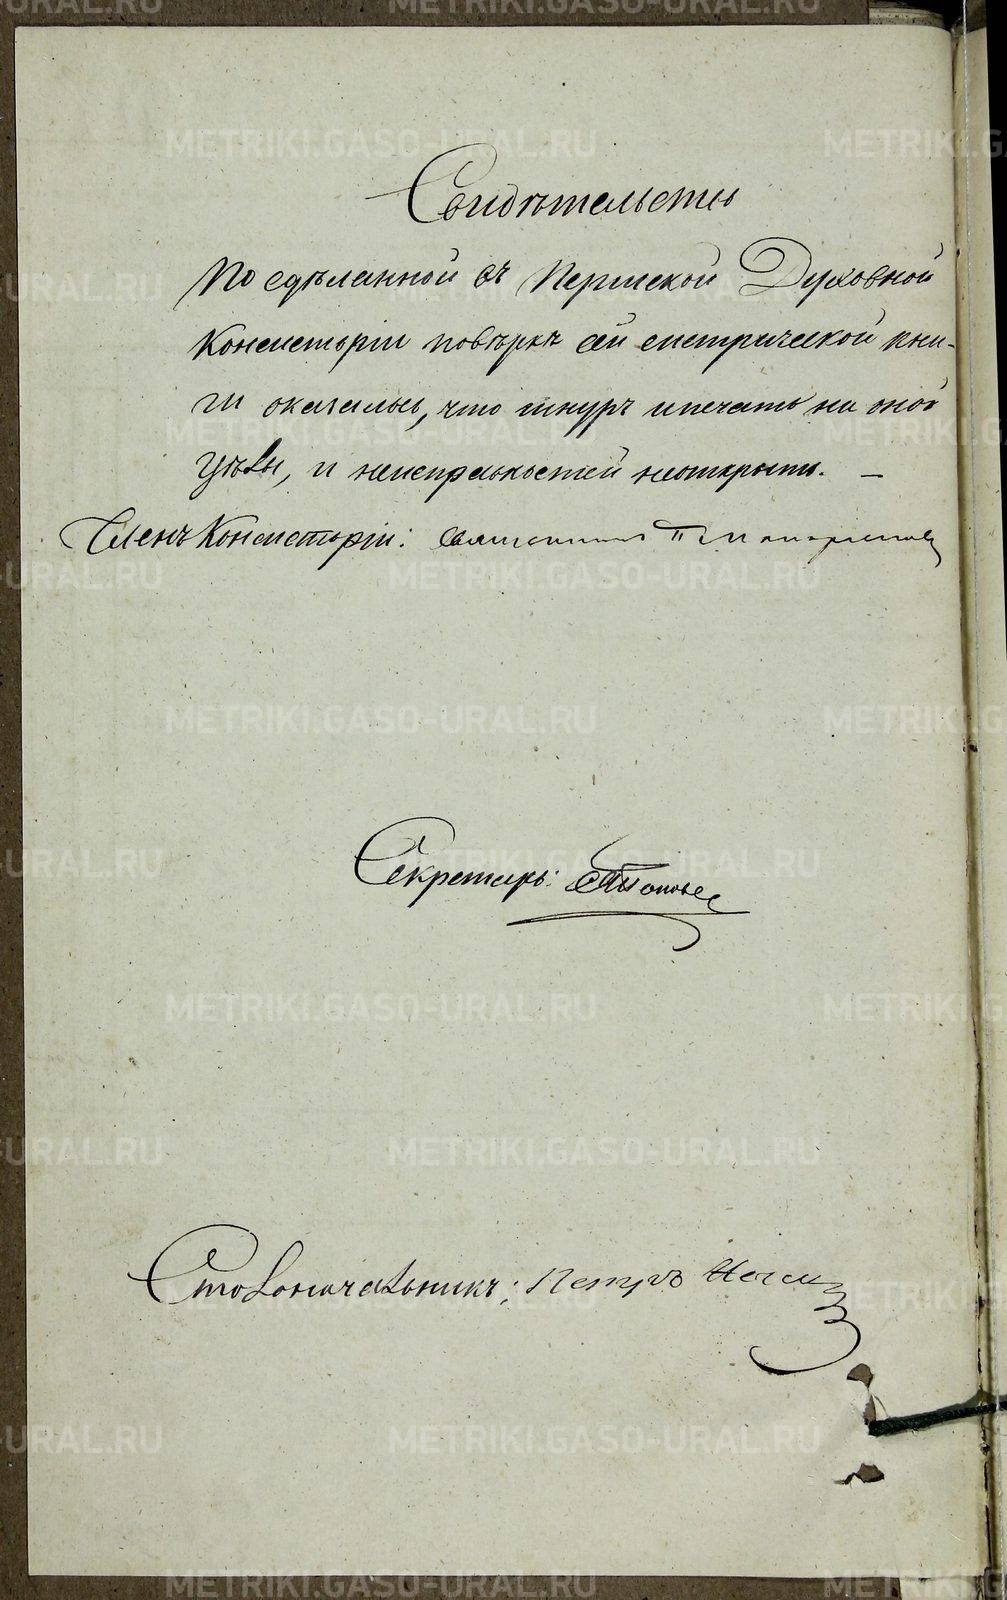 Свидѣтельство
По сдѣланной въ Пермской Духовной
Консисторіи повѣркѣ сей метрической кни-
ги оказалось, что шнуръ и печать на оной
цѣлы, и неисправностей неоткрыто. —
Членъ Консисторіи: Священникъ
Секретарь: Поповъ
Столоначальникъ: Петръ
METRIKI.GASO-URAL.RU